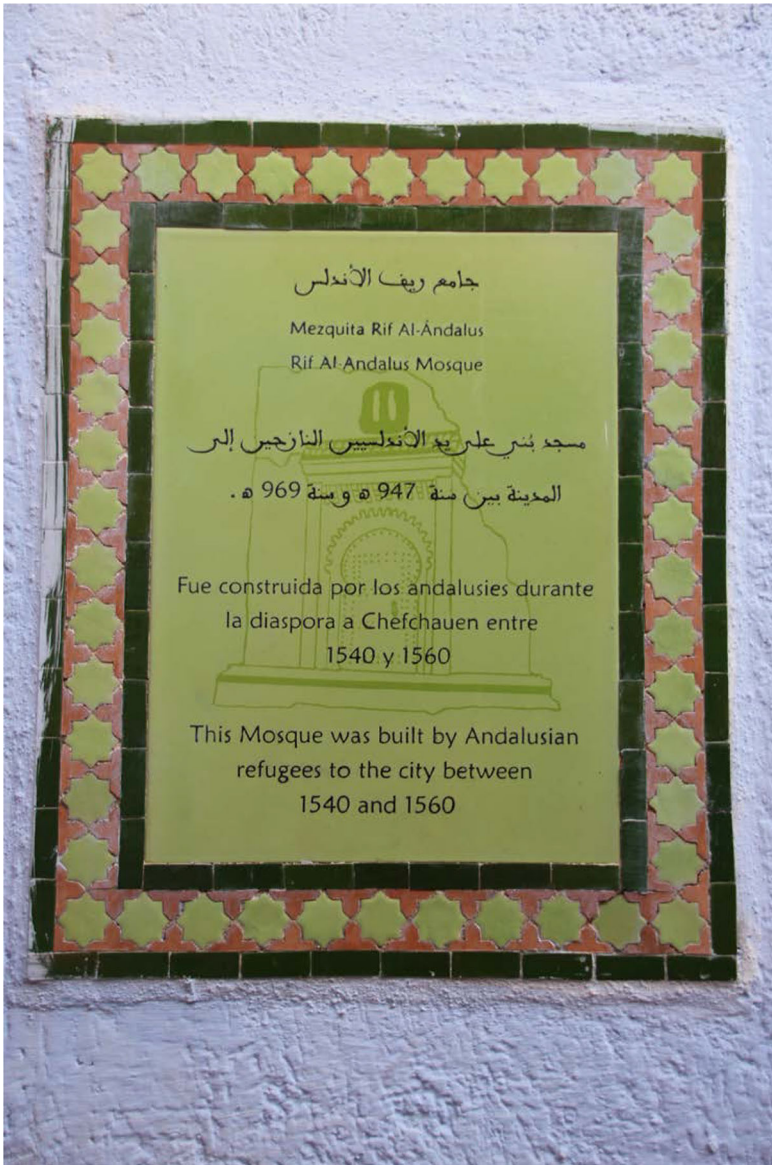 جامع ريف الأندلس
Mezquita Rif Al-Ándalus
Rif Al-Andalus Mosque
مسجد بُني على يد الأندلسيين النازحين إلى
المدينة بين سنة 947 ه و سنة 969 ه.
Fue construida por los andalusies durante
la diaspora a Chefchauen entre
1540 y 1560
This Mosque was built by Andalusian
refugees to the city between
1540 and 1560